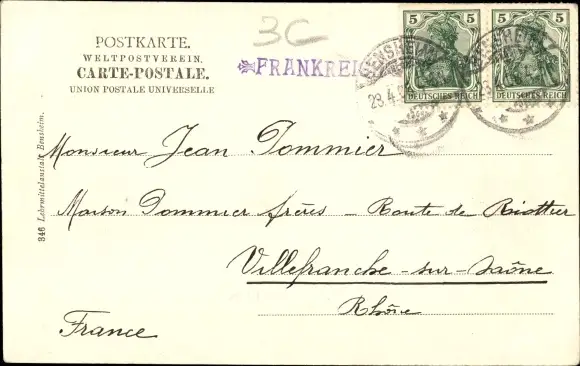 POSTKARTE.
WELTPOSTVEREIN.
CARTE-POSTALE.
UNION POSTALE UNIVERSELLE
3C
FRANKREI
5 5
DEUTSCHES REICH
5 5
DEUTSCHES REICH
BENSHEIM
23.4.
BENSHEIM
346 Lehrmittelanstalt Bensheim.
Monsieur Jean Pommier
Maison Pommier frères – Route de Riottier
Villefranche-sur-Saône
Rhône
France